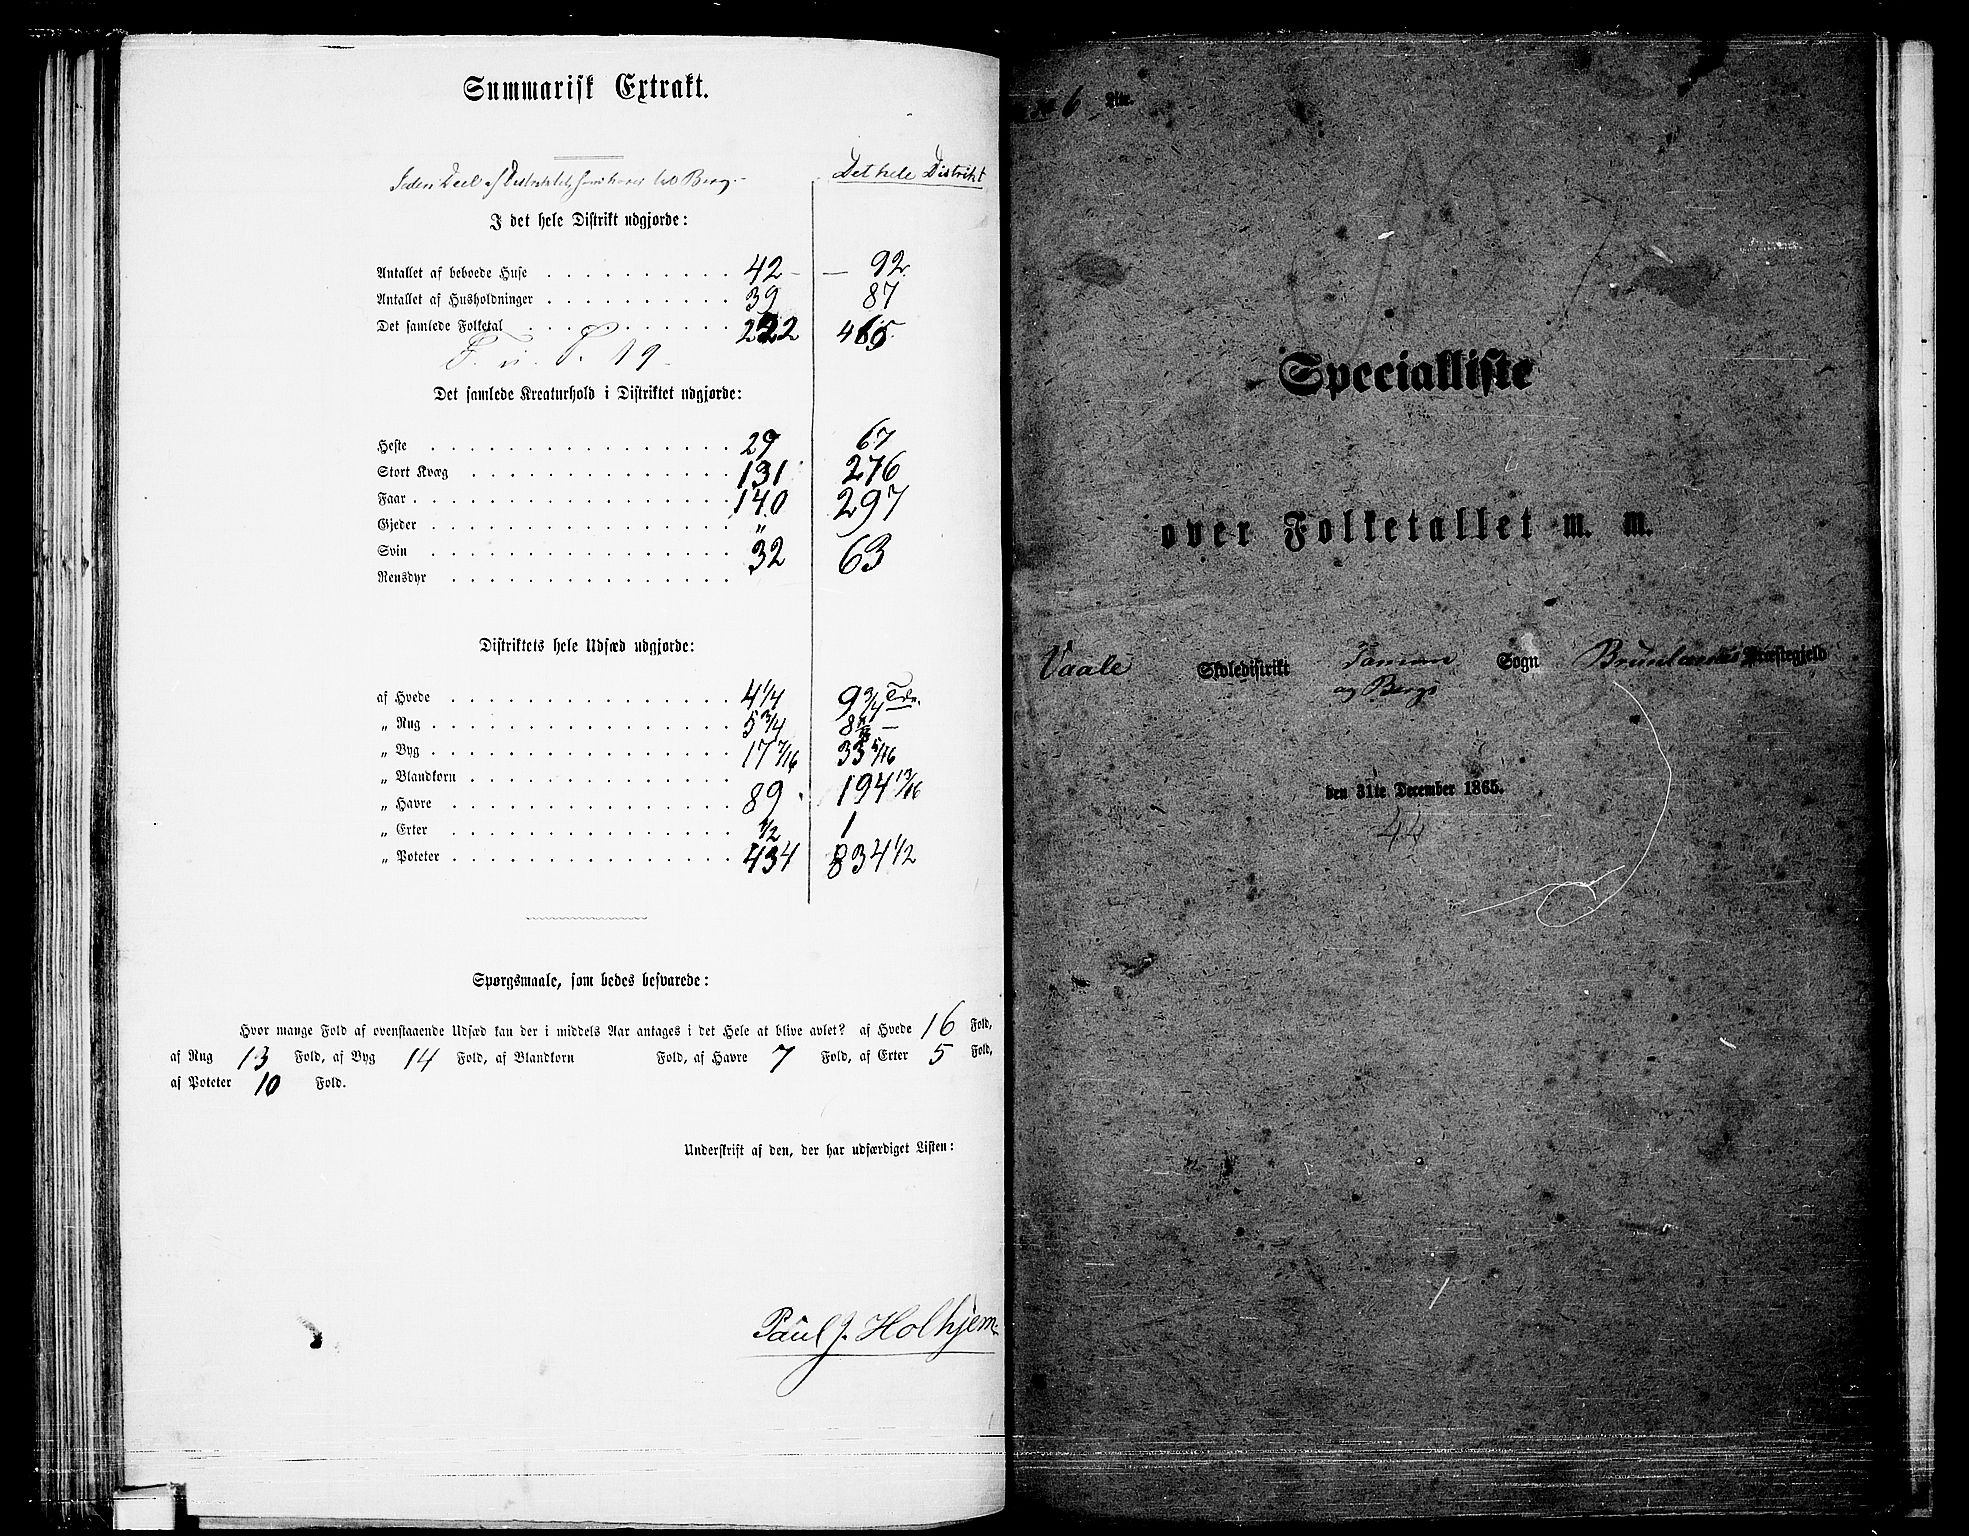 Summarisk Extrakt.
Det hele Distrikt
I det hele Distrikt udgjorde:
Antallet af beboede Huse 42 - — 92
Antallet af Husholdninger 39 87
Det samlede Folketal 222 465
19
Det samlede Kreaturhold i Distriktet udgjorde:
Heste 29 67
Stort Kvæg 131 276
Faar 140 297
Gjeder „
Svin 32 63
Rensdyr
Distriktets hele Udsæd udgjorde:
af Hvede 4 1/4 9 3/4 Tdr.
„ Rug 5 3/4 8 —
„ Byg 17 7/16 33 5/16
„ Blandkorn
„ Havre 89 194 13/16
„ Erter 1/2 1
„ Poteter 434 834 1/2
Spørgsmaale, som bedes besvarede:
Hvor mange Fold af ovenstaaende Udsæd kan der i middels Aar antages i det Hele at blive avlet? af Hvede 16 Fold,
af Rug 13 Fold, af Byg 14 Fold, af Blandkorn Fold, af Havre 7 Fold, af Erter 5 Fold,
af Poteter 10 Fold.
Underskrift af den, der har udfærdiget Listen:
Paul J. Holhjem
6
Specialliste
over Folketallet m. m.
Vaale Skoledistrikt Tanum Sogn Brunlanæs Præstegjeld
og Bergs
den 31te December 1865.
44